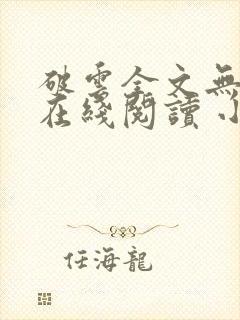 破雲全文無
在綫閱讀
任海龍